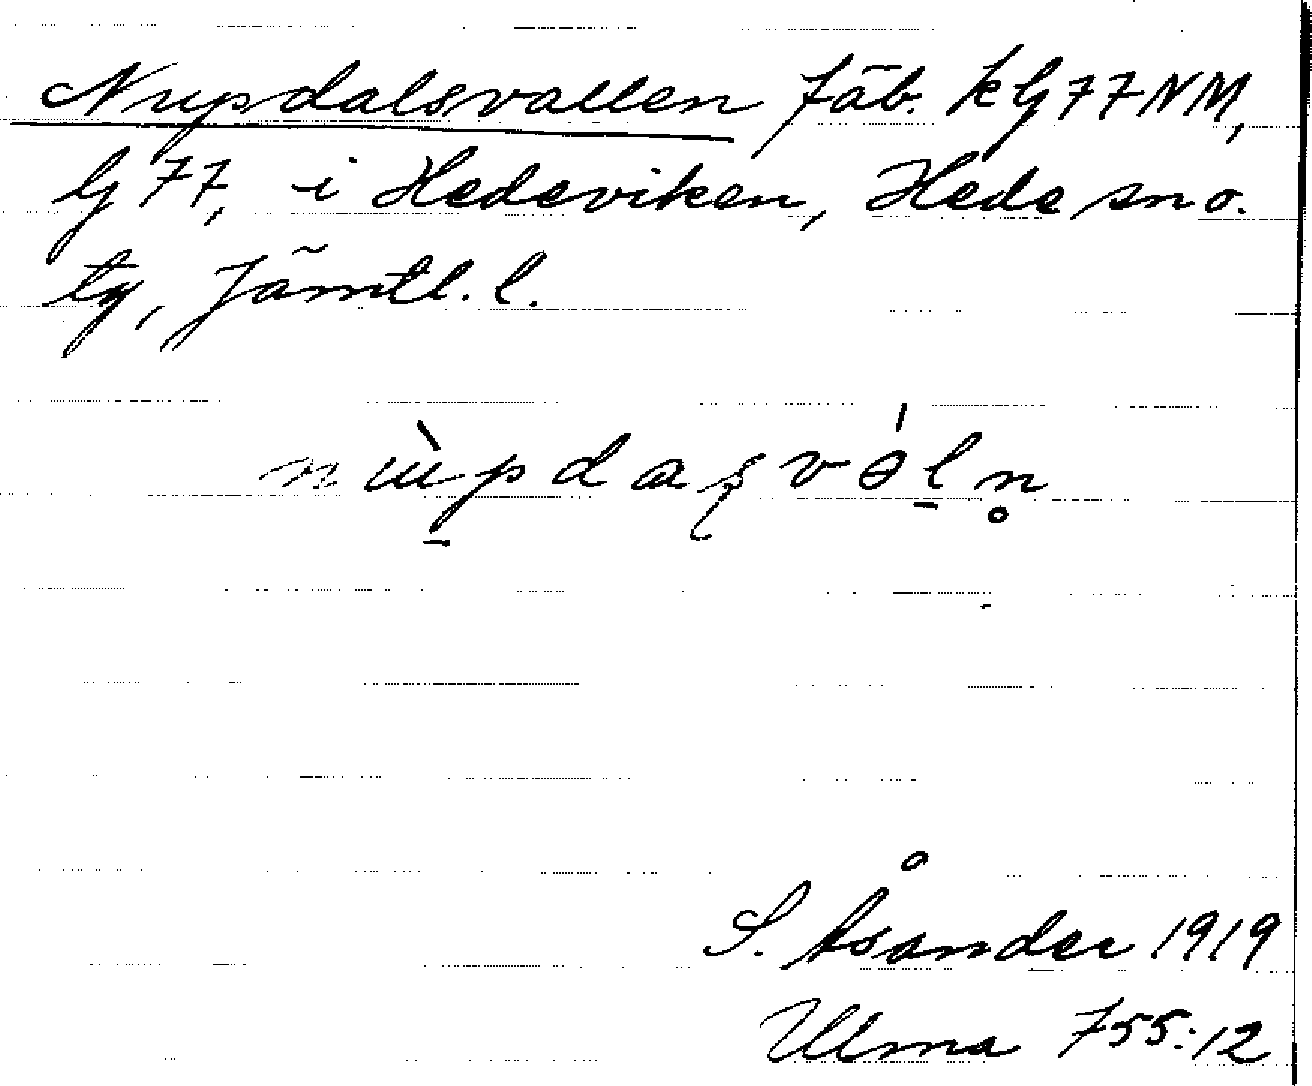 Nupdalsvallen fäb. kG77NM,
G 77, i Hedeviken, Hede sn o.
tg, Jämtl. l.
S. Åsander 1919
Ulma 755:12